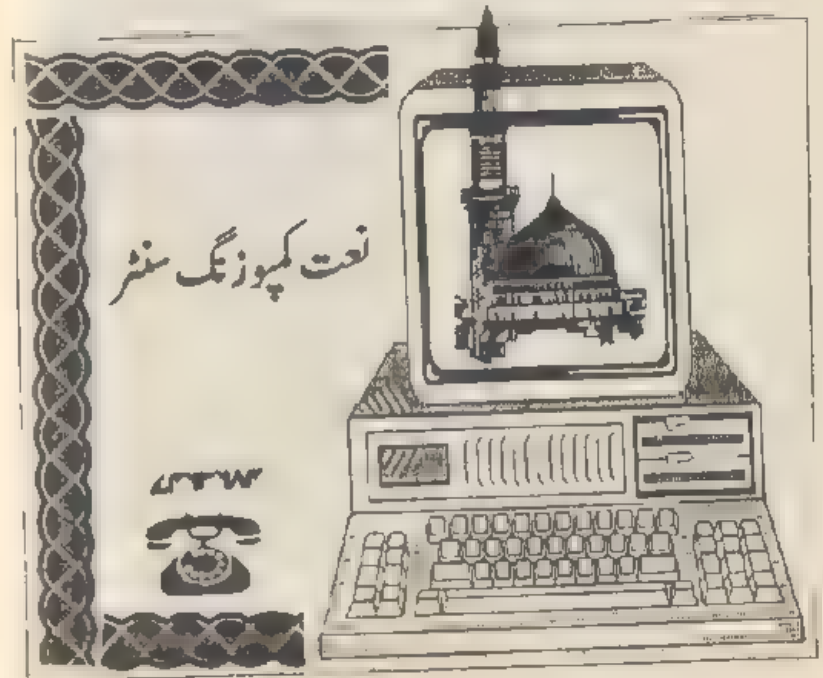 نعت کمپوزنگ سنٹر